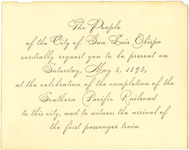 The People
of the City of San Luis Obispo
cordially request you to be present on
Saturday, May 5, 1894,
at the celebration of the completion of the
Southern Pacific Railroad
to this city, and to witness the arrival of
the first passenger train.